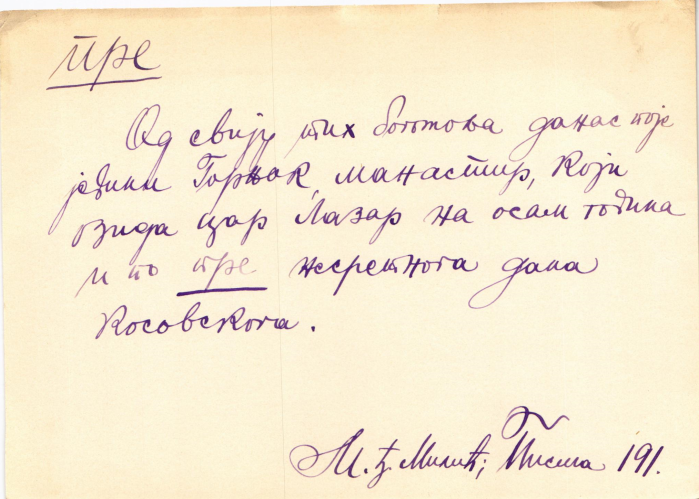 пре
Од свију тих богомоља данас стоје
једини Горњак, манастир, који
озида цар Лазар на осам година
и по пре несретнога дана
Косовскога.
М. Ђ. Милић; Писма 191.